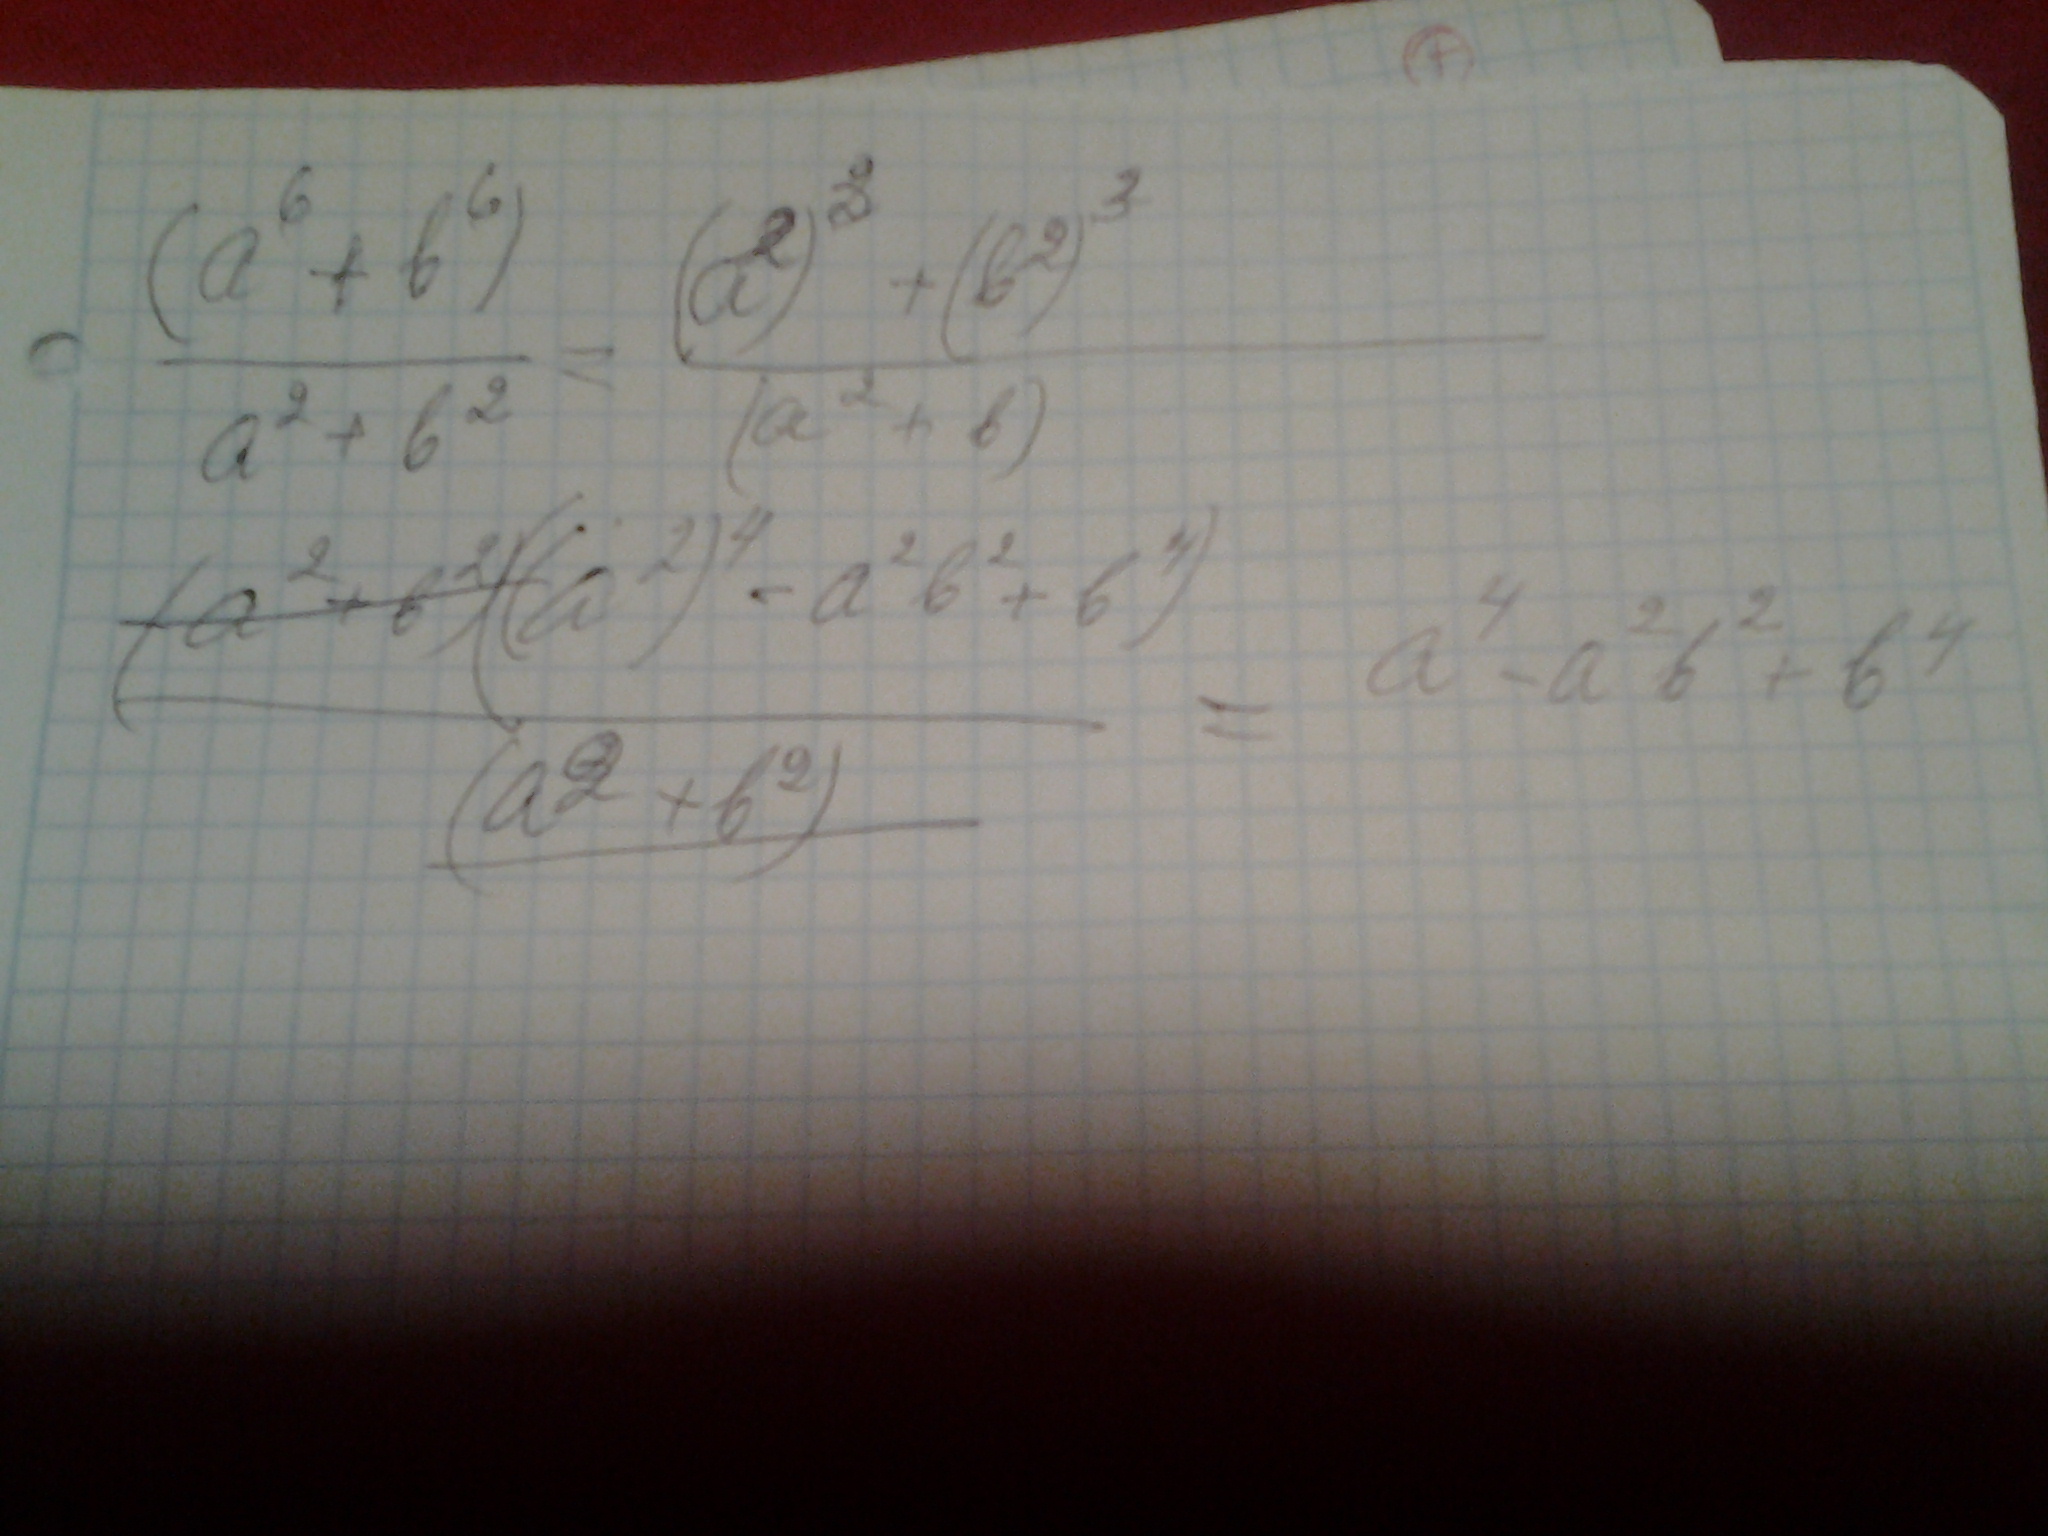 (a⁶ + b⁶) / a² + b² = (a²)³ + (b²)³ / (a² + b)
(a² + b²)((a²)⁴ - a²b² + b⁴) / (a² + b²) = a⁴ - a²b² + b⁴